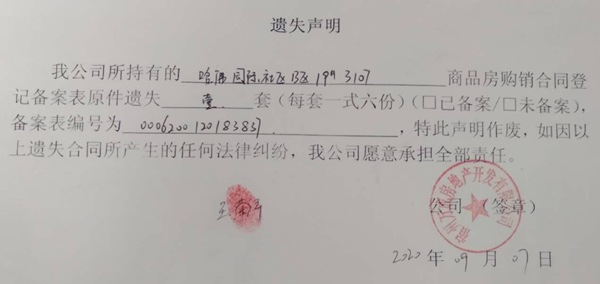 遗失声明
我公司所持有的 国际社区B区19# 3107 商品房购销合同登
记备案表原件遗失 壹 套（每套一式六份）（□已备案/□未备案），
备案表编号为 ，特此声明作废，如因以
上遗失合同所产生的任何法律纠纷，我公司愿意承担全部责任。
王
公司（签章）
房地产开发有限公司
2020 年 09 月 07 日